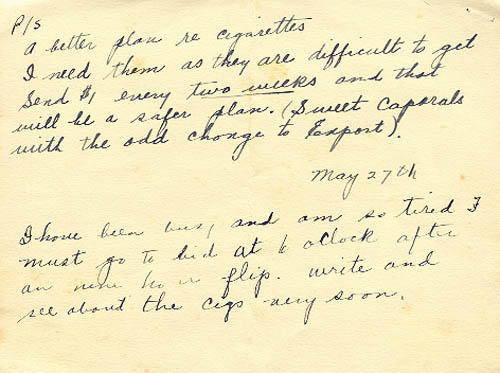 P/S
A better plan re cigarettes
I need them as they are difficult to get
Send $1 every two weeks and that
will be a safer plan. (Sweet Caporals
with the odd change to Export).
May 27th
I have been busy and am so tired I
must go to bed at 6 oClock after
an nine hour flip. write and
see about the cigs very soon.